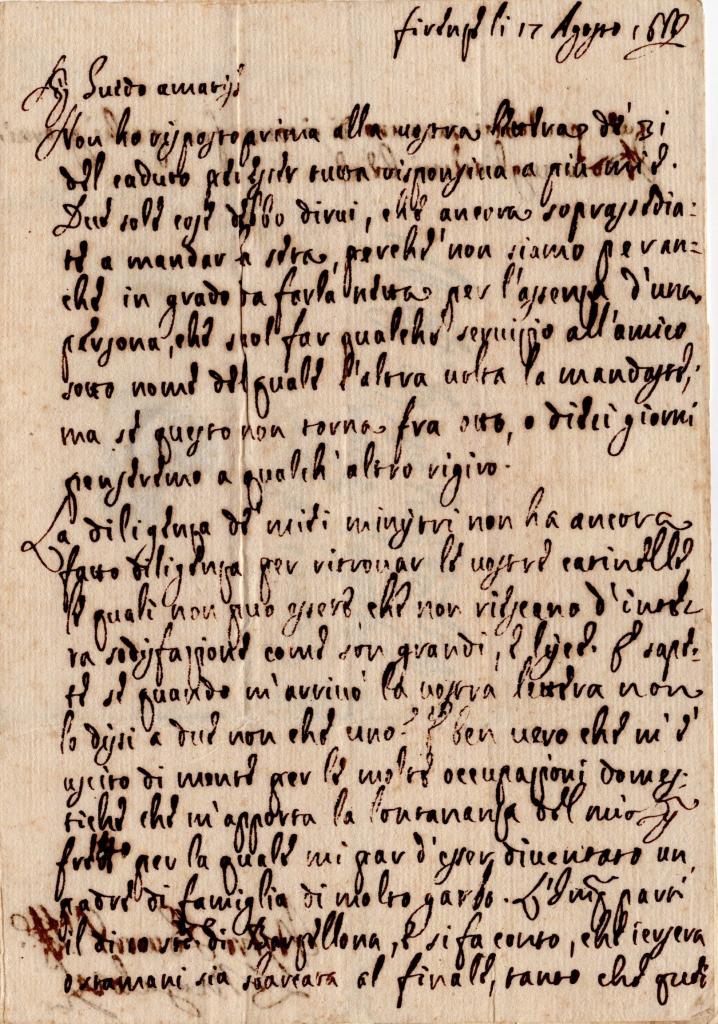 Firenze li 17 Agosto
Sig Guido amatis
Non ho risposto prima alla vostra lettera de' 21
del caduto per esser tutta risponsiva a più mie.
Due sole cose debbo dirui, che ancora soprassedia:
te a mandar la seta, perché non siamo per an:
che in grado da farla per l'assenza d'una
persona, che suol far qualche seruizio all'amico
sotto nome del quale l'altra uolta la mandaste;
ma se questo non torna fra otto, o dieci giorni
penseremo a qualch' altro rigiro.
La diligenza de miei ministri non ha ancora
fatto diligenza per ritrouar le uostre catinelle,
le quali non può essere, che non riescano d'inte:
ra sodisfazione come son grandi, e lisce. E sape:
te se quando m'arriuò la uostra lettera non
lo dissi a due non che uno? È ben uero che m'è
uscito di mente per le molte occupazioni domes:
tiche che m'apporta la lontananza del mio Sig
per la quale mi par d'esser diuentato un
padre di famiglia di molto garbo. L'Imp partì
il di Barzellona, e si fa conto, che iersera
o stamani sia sbarcata al Finale, tanto che